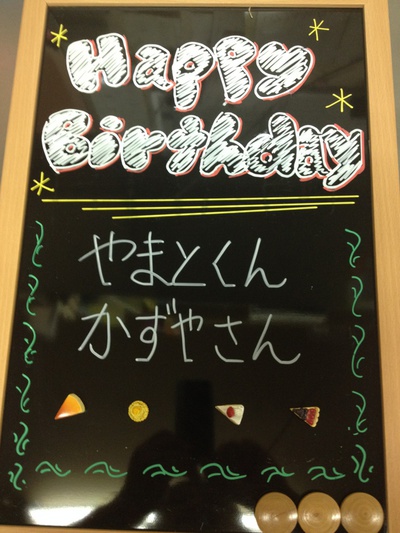 Happy
Birthday
やまとくん
かずやさん